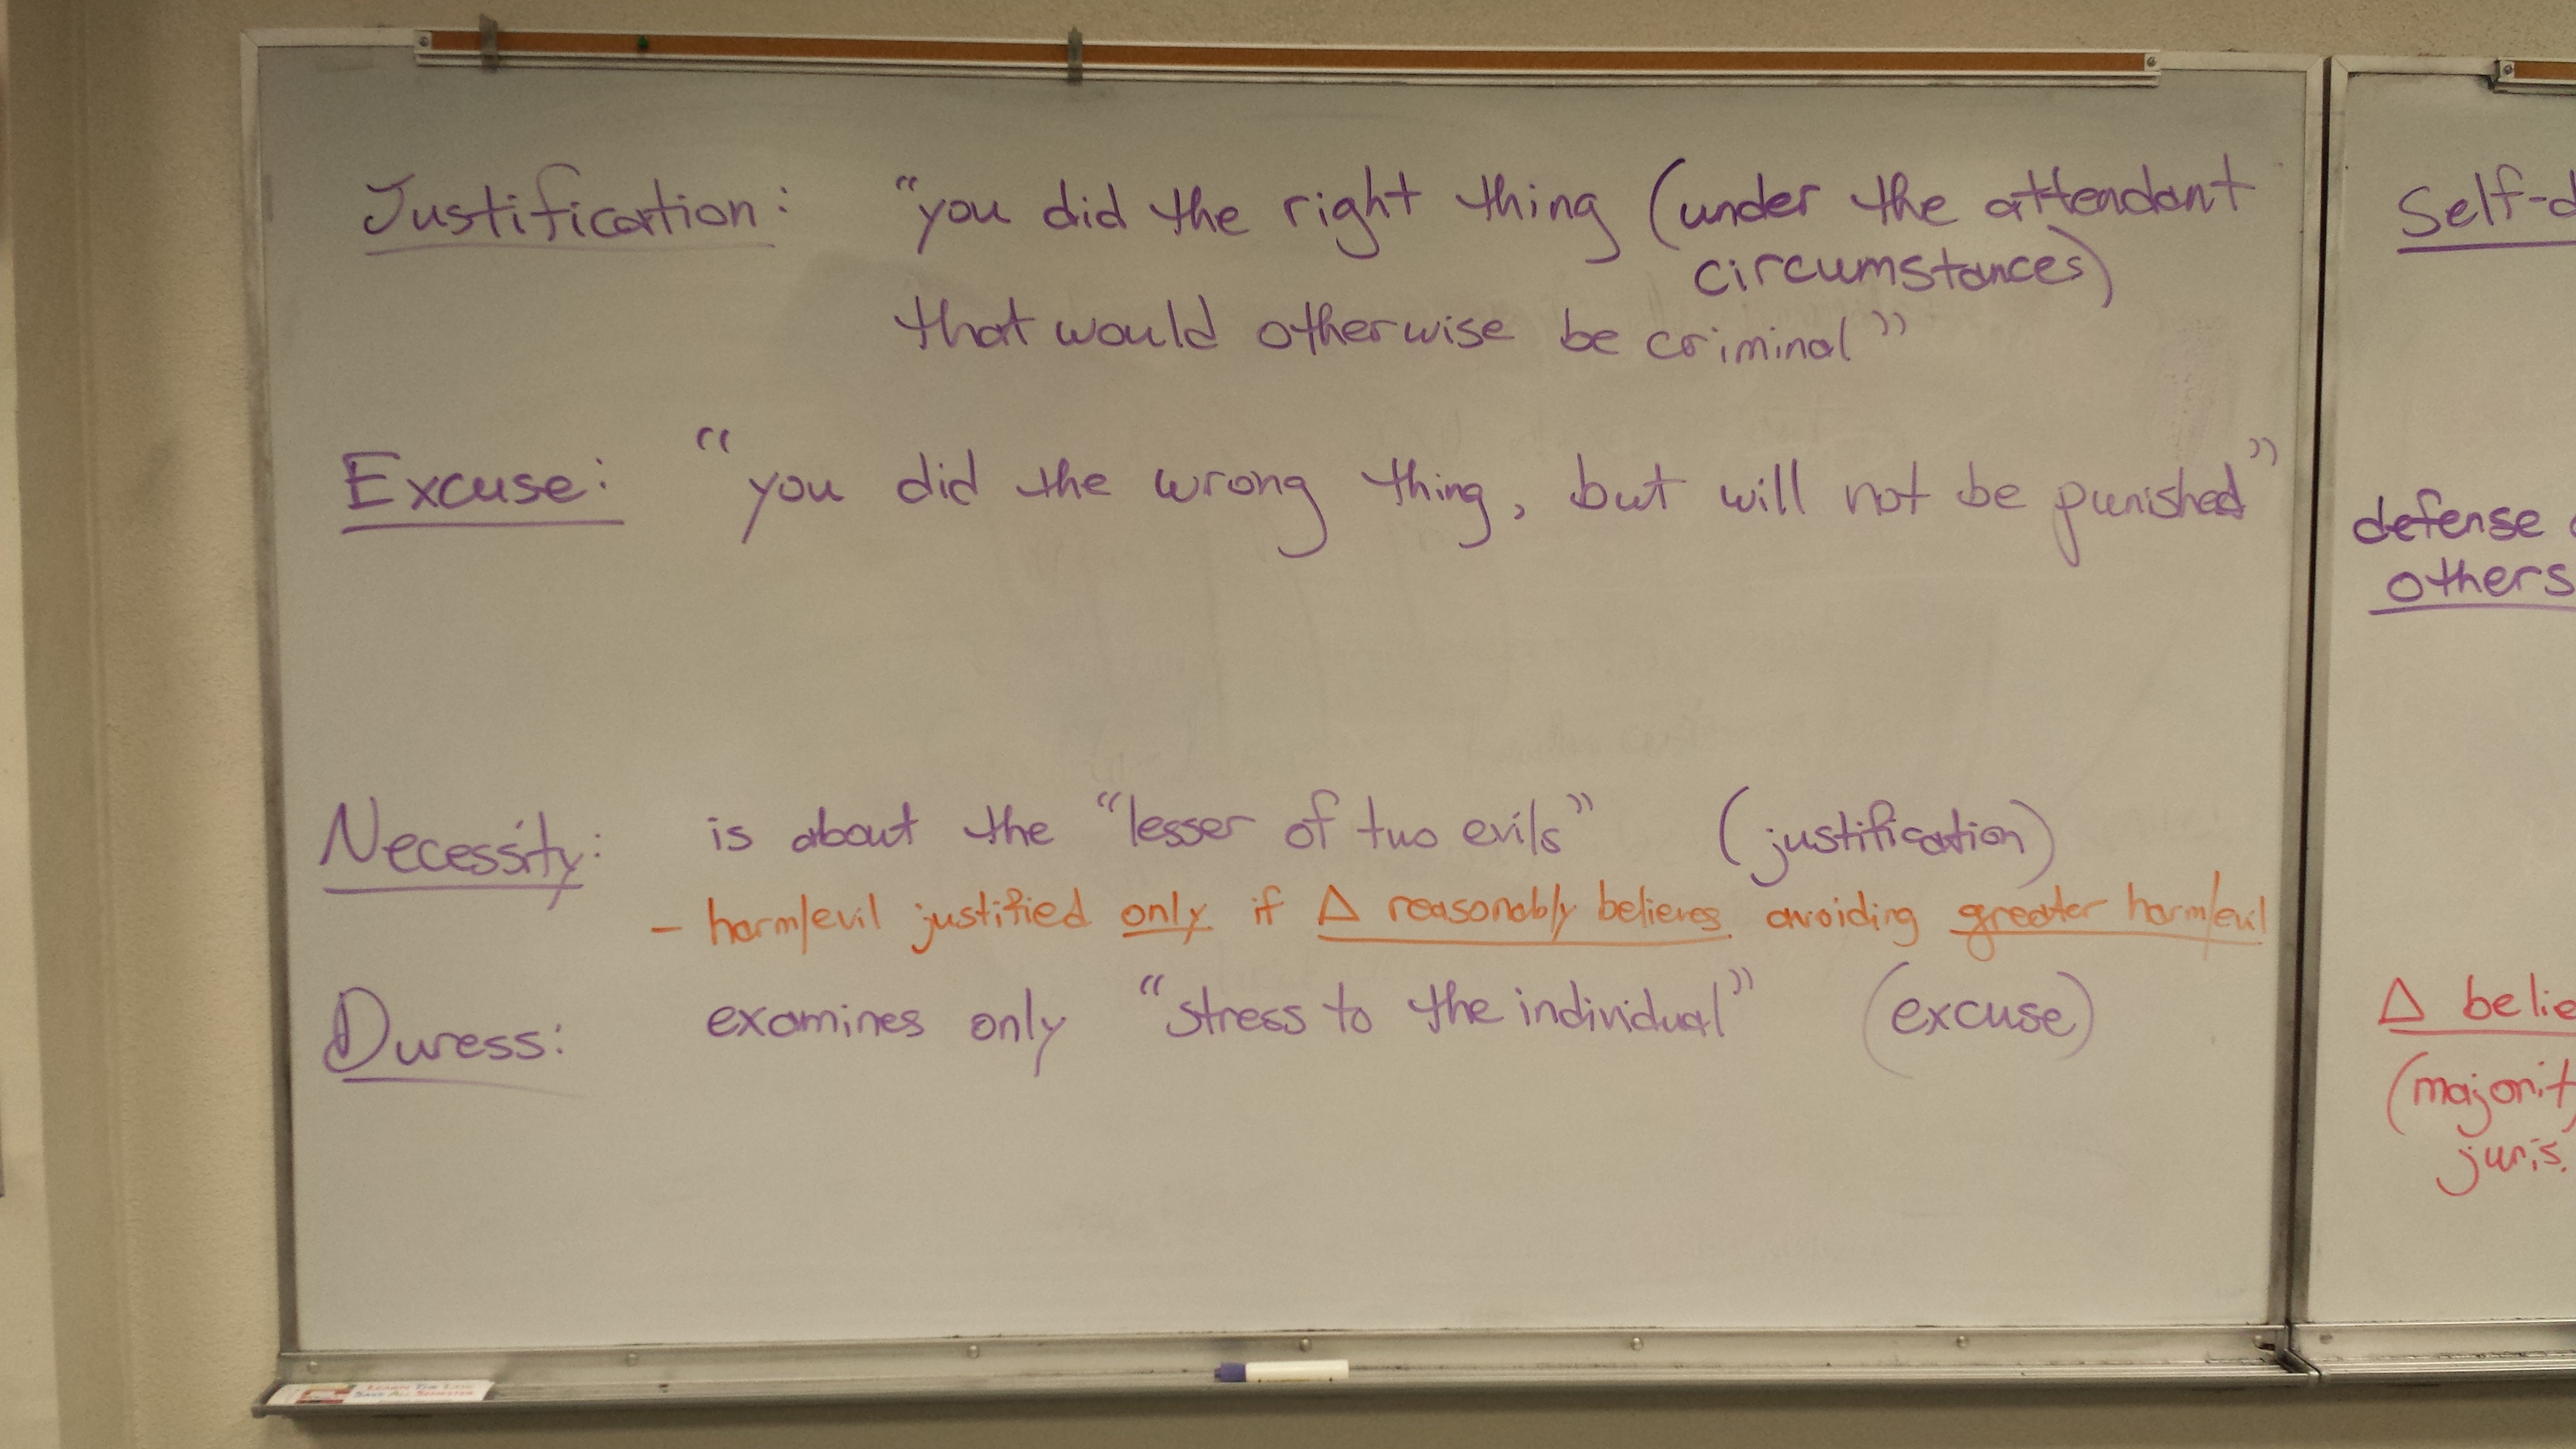 Justification: "you did the right thing (under the attendant
circumstances)
that would otherwise be criminal"
Excuse: "you did the wrong thing, but will not be punished"
Necessity: is about the "lesser of two evils" (justification)
- harm/evil justified only if Δ reasonably believes avoiding greater harm/evil
Duress: examines only "stress to the individual" (excuse)
Self-d
defense
others
Δ belie
(majorit
juris.
LEARN THE LAW
SAVE ALL SEMESTER